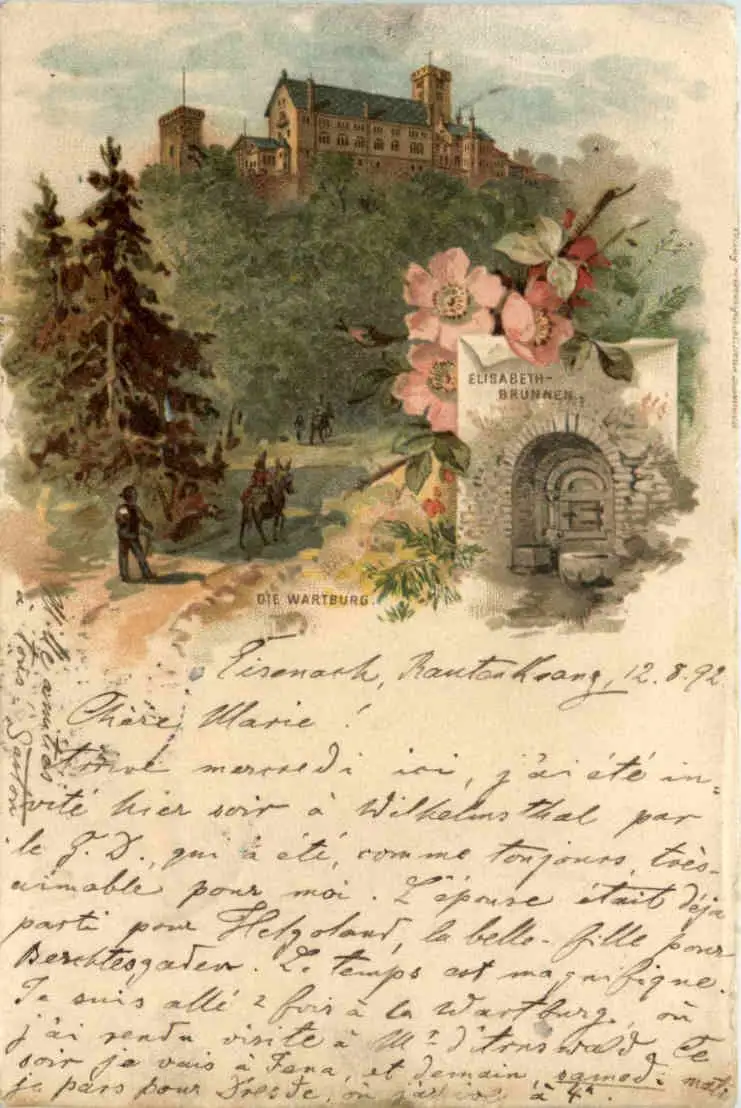 ELISABETH-
BRUNNEN.
DIE WARTBURG.
Eisenach, Rautenkranz, 12.8.92
Chère Marie!
mercredi ici, j'ai été in=
vité hier soir à Wilhelmsthal par
le G. D., qui a été, comme toujours, très-
aimable pour moi. L'épouse était déjà
parti pour Helgoland, la belle-fille pour
Berchtesgaden. Le temps est magnifique.
Je suis allé 2 fois à la Wartburg, où
j'ai rendu visite à Mr d'Arnswald. Ce
soir je vais à Jena, et demain, samedi mat:
je pars pour Dresde, où j'arrive à 4h.
Mille amitiés
à tous. Gaston